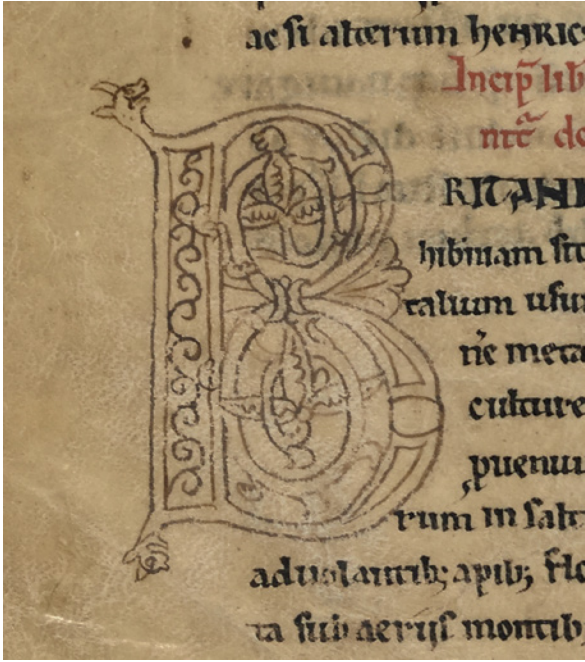 ac si alterum henric
Incip̄ lib
nic̄ de
BRITANI
hiƀniam sit
talium usui
n̄e meta
culture
ꝓuenui
rum in salt
aduolantib; apib; flo
ta sub aeriis montib